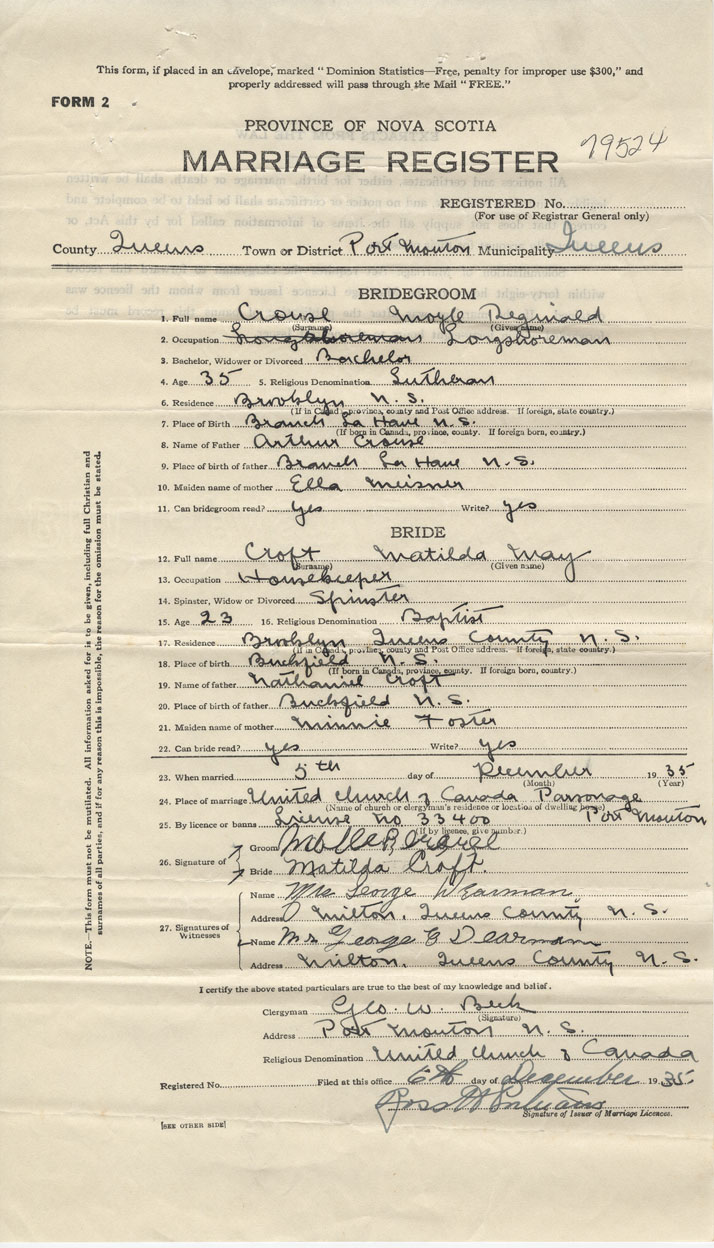 This form, if placed in an envelope, marked "Dominion Statistics—Free, penalty for improper use $300," and
properly addressed will pass through the Mail "FREE."
FORM 2
PROVINCE OF NOVA SCOTIA
79524
MARRIAGE REGISTER
REGISTERED No.
(For use of Registrar General only)
County Queens Town or District Port Mouton Municipality Queens
BRIDEGROOM
1. Full name Crouse Moyle Reginald
(Surname) (Given name)
2. Occupation Longshoreman
3. Bachelor, Widower or Divorced Bachelor
4. Age 35 5. Religious Denomination Lutheran
6. Residence Brooklyn N.S.
(If in Canada, province, county and Post Office address. If foreign, state country.)
7. Place of Birth Branch La Have N.S.
(If born in Canada, province, county. If foreign born, country.)
8. Name of Father Arthur Crouse
9. Place of birth of father Branch La Have N.S.
10. Maiden name of mother Ella Meisner
11. Can bridegroom read? yes Write? yes
BRIDE
12. Full name Croft Matilda May
(Surname) (Given name)
13. Occupation Housekeeper
14. Spinster, Widow or Divorced Spinster
15. Age 23 16. Religious Denomination Baptist
17. Residence Brooklyn Queens County N.S.
(If in Canada, province, county and Post Office address. If foreign, state country.)
18. Place of birth Buckfield N.S.
(If born in Canada, province, county. If foreign born, country.)
19. Name of father Nathaniel Croft
20. Place of birth of father Buckfield N.S.
21. Maiden name of mother Minnie Foster
22. Can bride read? yes Write? yes
23. When married 5th day of December 1935
(Month) (Year)
24. Place of marriage United Church of Canada Parsonage
(Name of church or clergyman's residence or location of dwelling house)
Port Mouton
25. By licence or banns License no 33400
(If by licence, give number.)
26. Signature of
Groom
Bride Matilda Croft.
27. Signatures of Witnesses
Name Mrs George Dearman
Address Milton, Queens County N.S.
Name Mr George G Dearman
Address Milton, Queens County N.S.
I certify the above stated particulars are true to the best of my knowledge and belief.
Clergyman Geo. W. Beck
(Signature)
Address Port Mouton N.S.
Religious Denomination United Church of Canada
Registered No. Filed at this office 6th day of December 1935
Signature of Issuer of Marriage Licences.
[SEE OTHER SIDE]
NOTE.—This form must not be mutilated. All information asked for is to be given, including full Christian and
surnames of all parties, and if for any reason this is impossible, the reason for the omission must be stated.